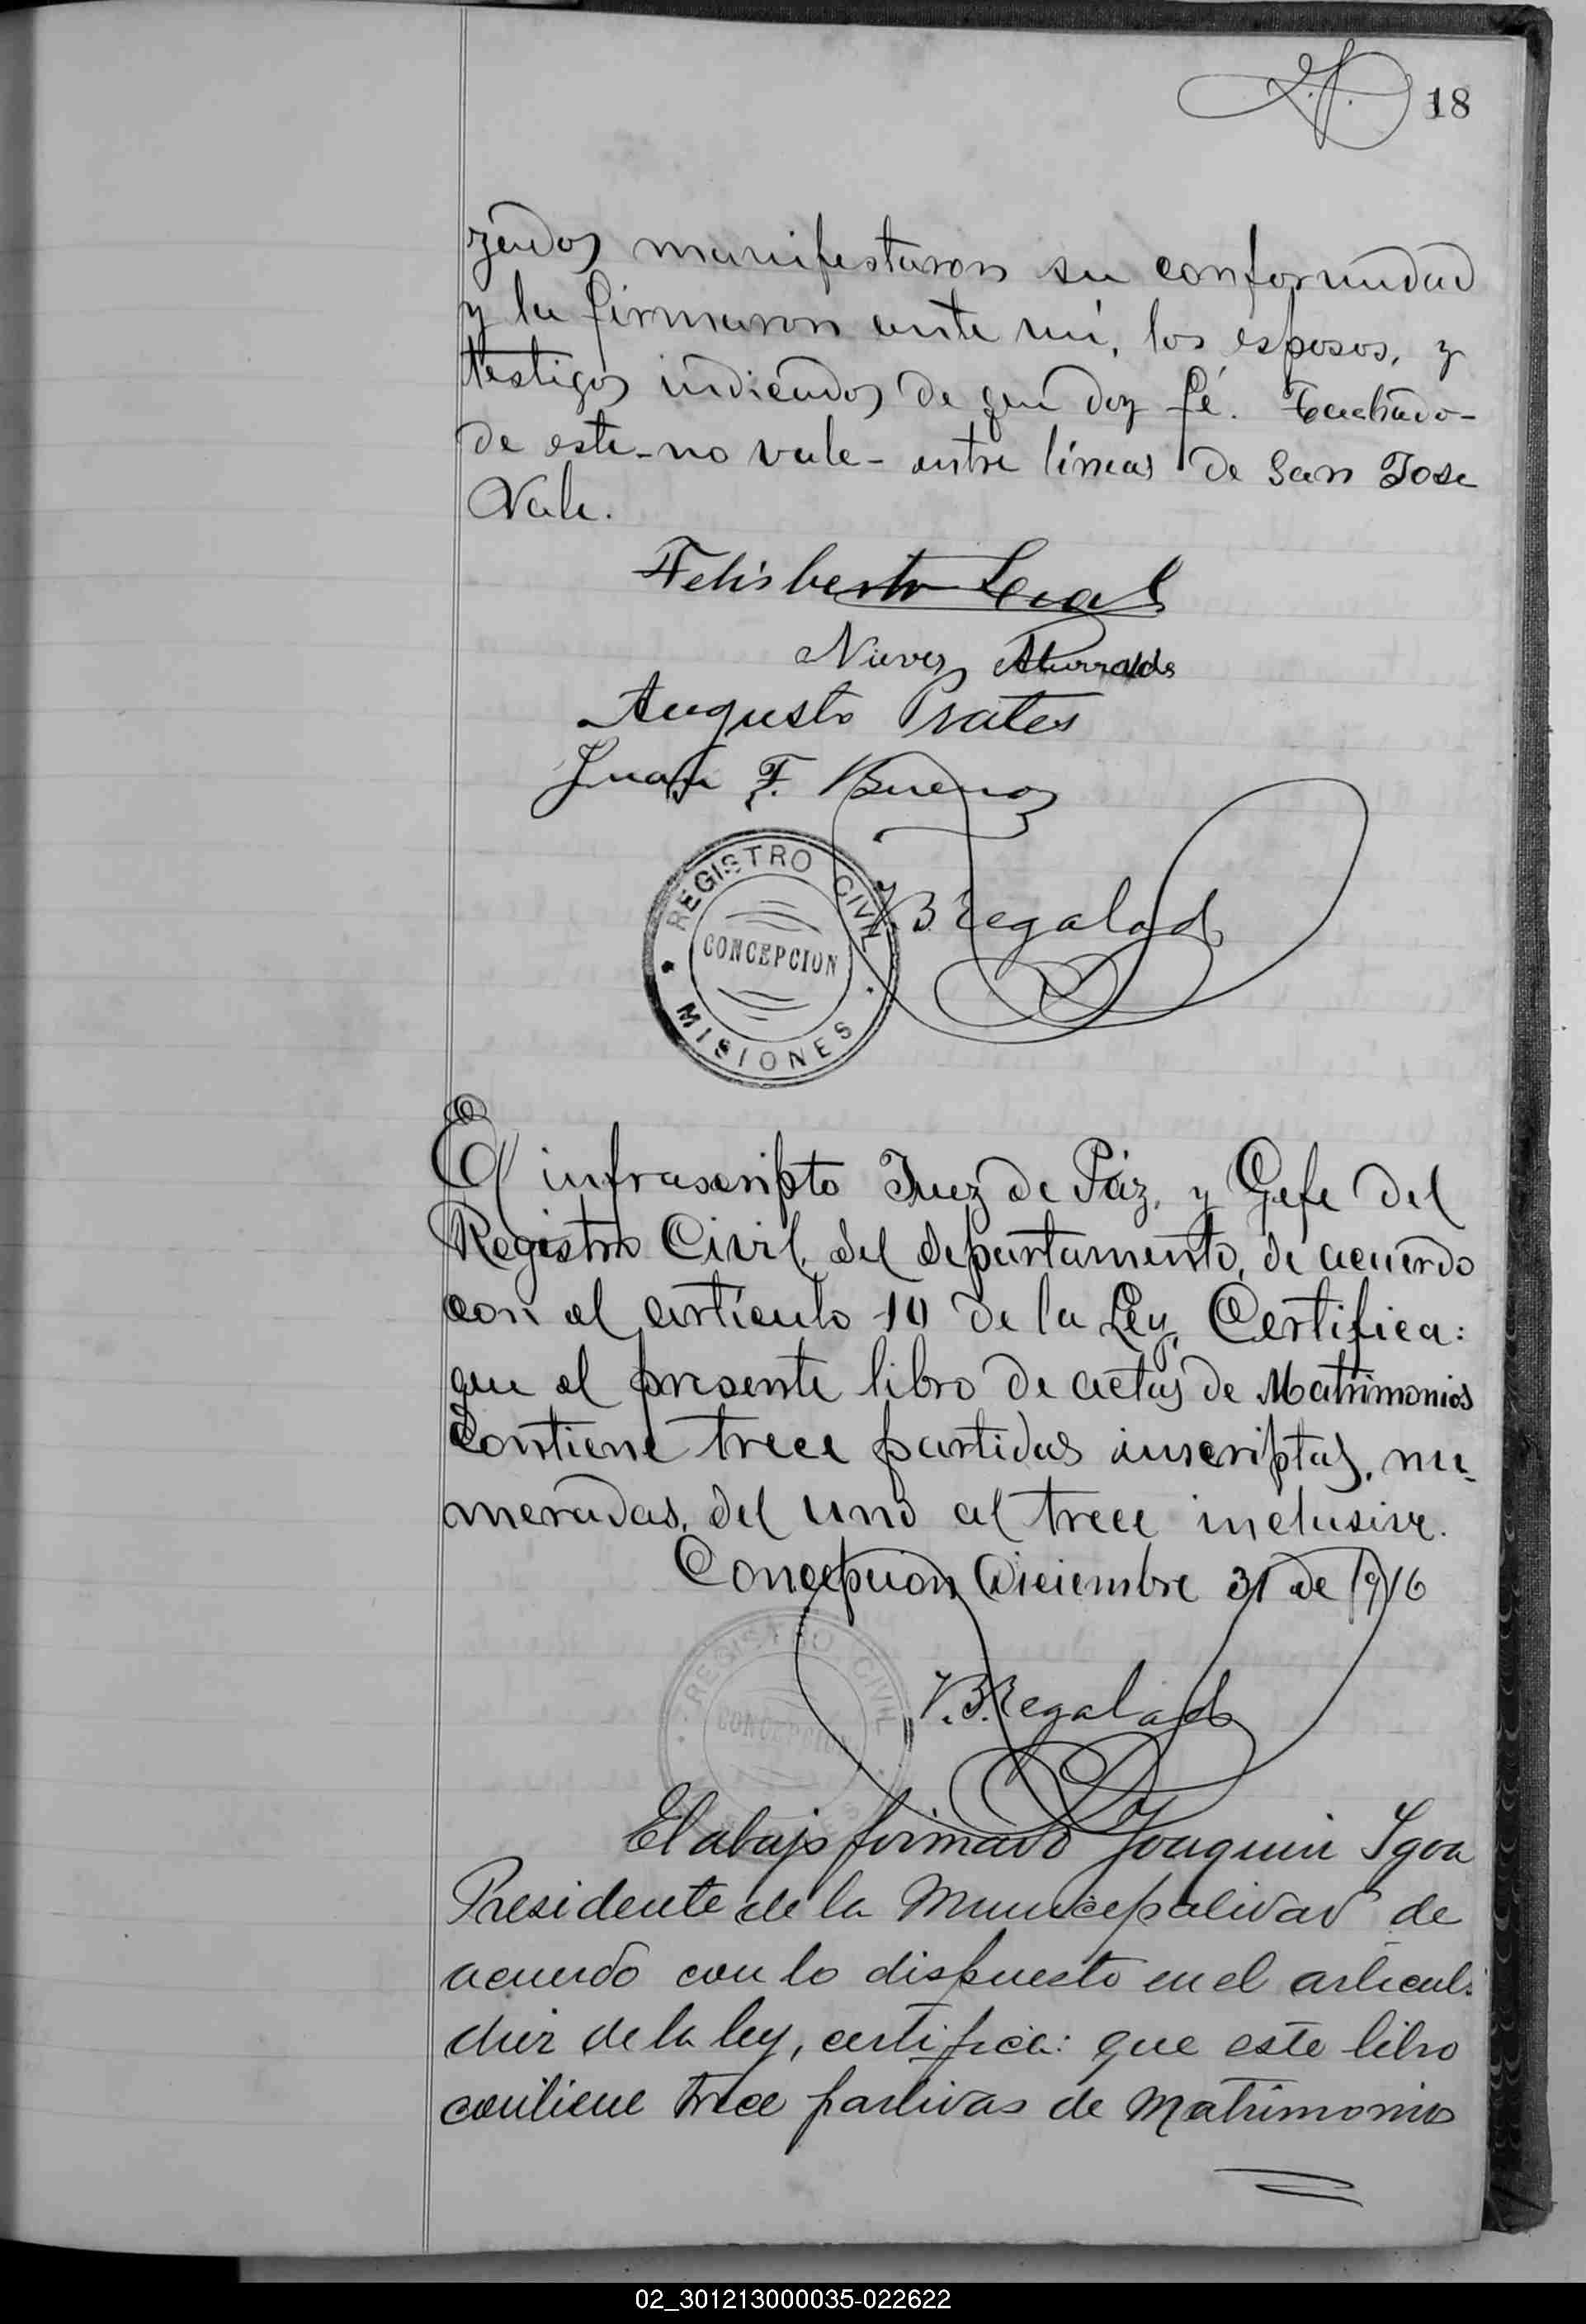 18
zados manifestaron su conformidad
y la firmaron ante mí, los esposos, y
testigos indicados de que doy fé. Tachado-
de este-no vale- entre líneas de San Jose
Vale.
Felisberto Leal
Nieves Iturralde
Augusto Prates
Juan F. Bueno
REGISTRO CIVIL
CONCEPCION
MISIONES
V. B. Regalado
El infrascripto Juez de Páz, y Gefe del
Registro Civil, del departamento, de acuerdo
con el artículo 10 de la Ley, Certifica:
que el presente libro de actas de Matrimonios
Contiene trece partidas inscriptas, nu-
meradas, del uno al trece inclusive.
Concepcion Diciembre 31 de 1916
REGISTRO CIVIL
CONCEPCION
V. B. Regalado
El abajo firmado Joaquin Igoa
Presidente de la Municipalidad de
acuerdo con lo dispuesto en el articulo
diez de la ley, certifica: que este libro
contiene trece partidas de Matrimonios
02_301213000035-022622